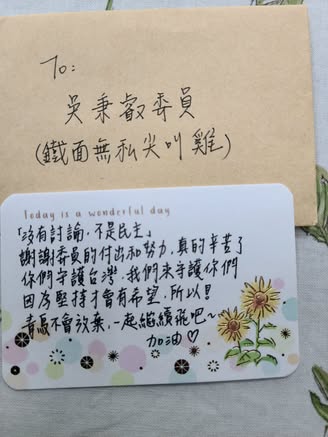 To:
吳秉叡委員
(鐵面無私尖叫雞)
Today is a wonderful day
「沒有討論,不是民主」
謝謝委員的付出和努力,真的辛苦了
你們守護台灣,我們來守護你們
因為堅持才會有希望,所以!
青鳥不會放棄,一起繼續飛吧~
加油♡